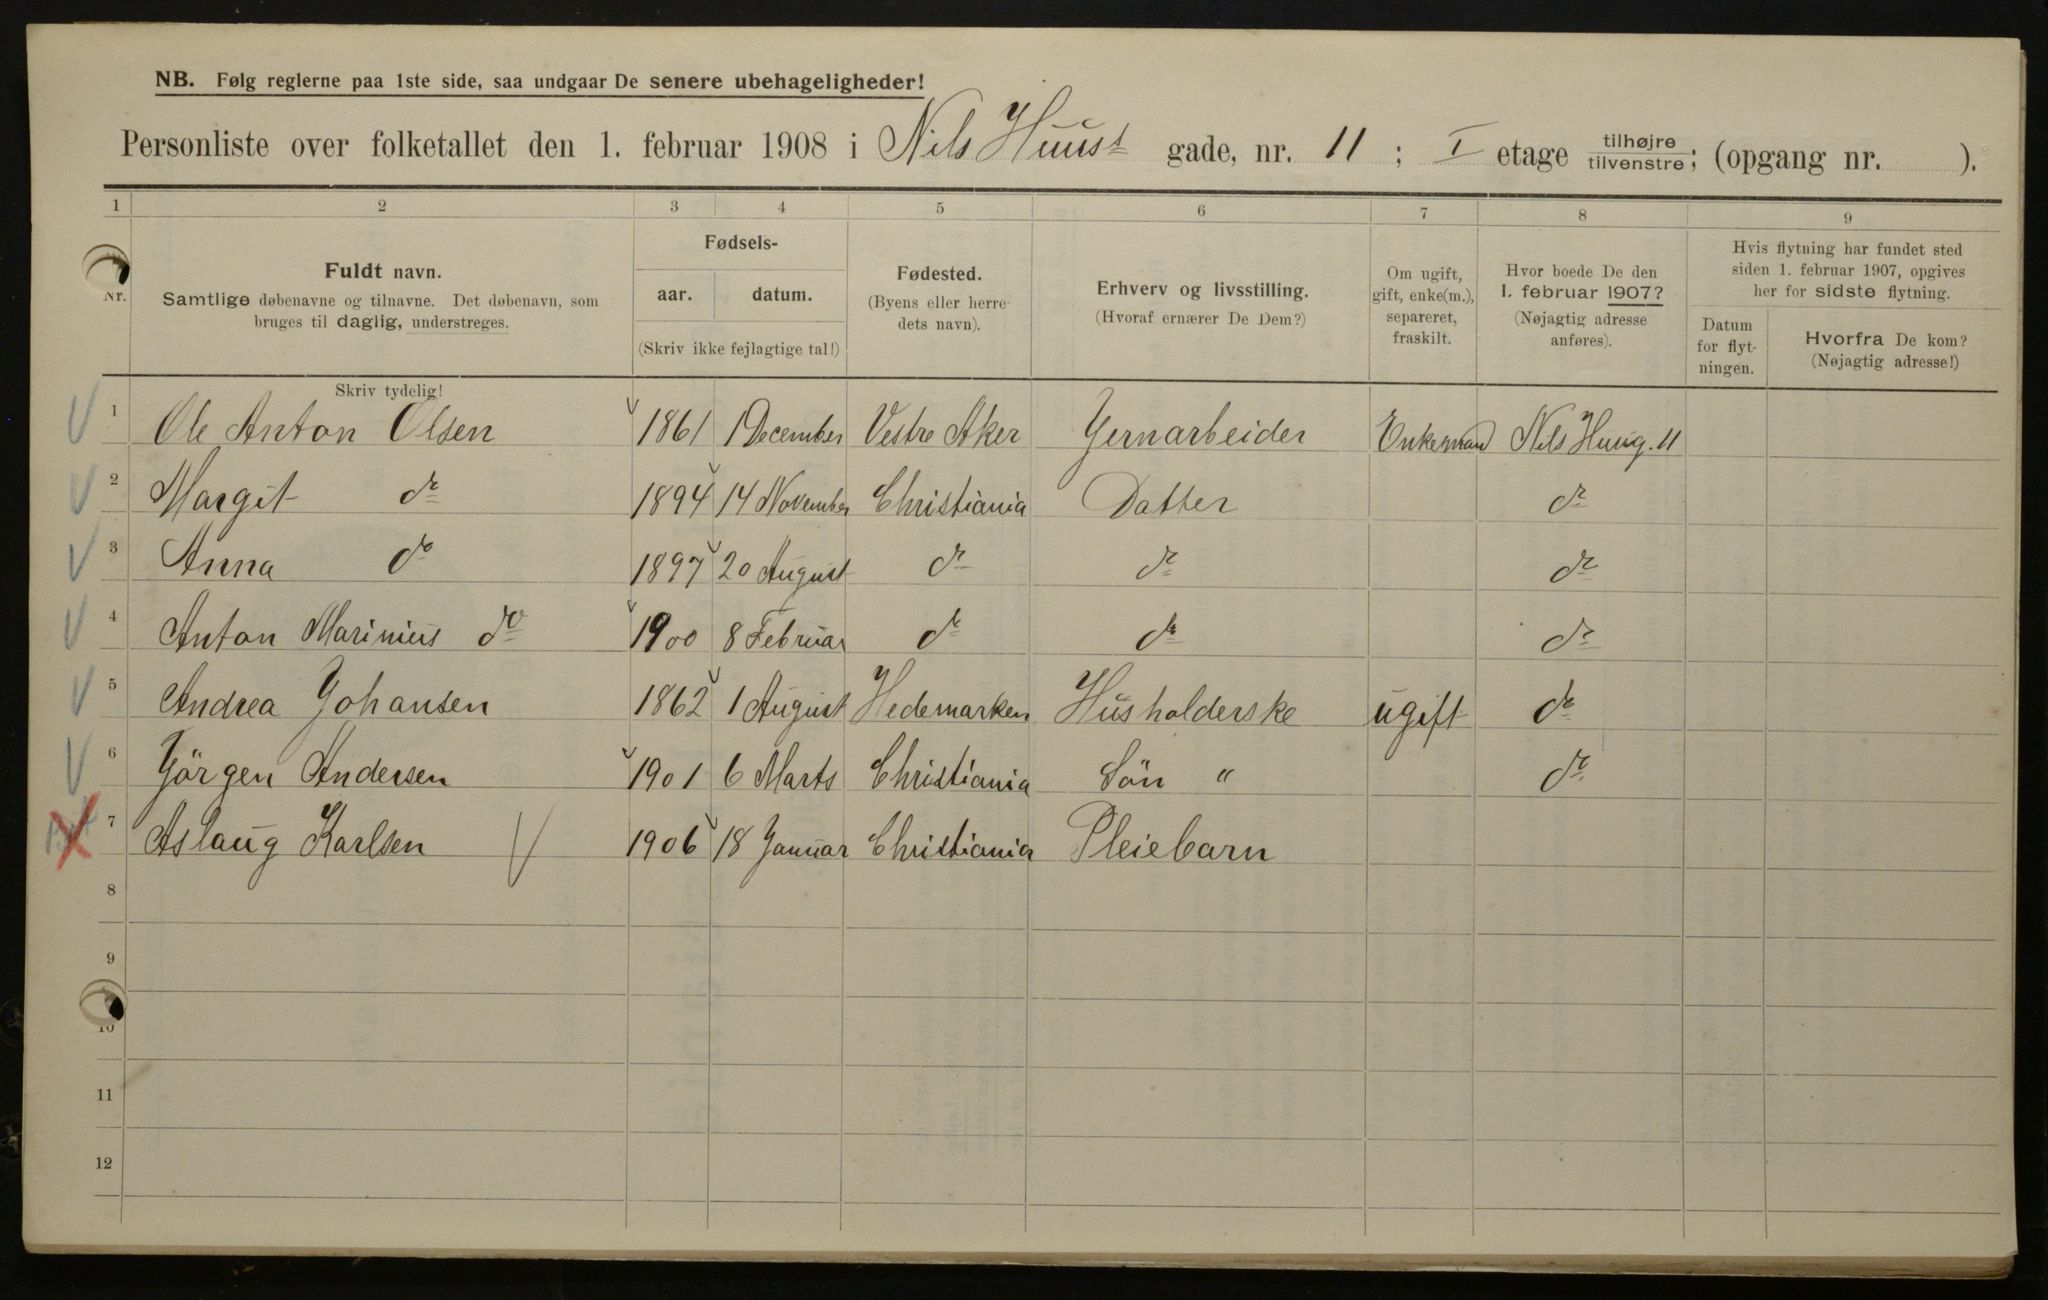 NB. Følg reglerne paa 1ste side, saa undgaar De senere ubehageligheder!
Personliste over folketallet den 1. februar 1908 i Nils Huust gade, nr. 11 ; I etage tilhøjre/tilvenstre; (opgang nr. ).
1 2 3 4 5 6 7 8 9
Nr.
Fuldt navn.
Samtlige døbenavne og tilnavne. Det døbenavn, som
bruges til daglig, understreges.
Skriv tydelig!
Fødsels-
aar. datum.
(Skriv ikke fejlagtige tal!)
Fødested.
(Byens eller herre-
dets navn).
Erhverv og livsstilling.
(Hvoraf ernærer De Dem?)
Om ugift,
gift, enke(m.),
separeret,
fraskilt.
Hvor boede De den
1. februar 1907?
(Nøjagtig adresse
anføres).
Hvis flytning har fundet sted
siden 1. februar 1907, opgives
her for sidste flytning.
Datum
for flyt-
ningen.
Hvorfra De kom?
(Nøjagtig adresse!)
1 Ole Anton Olsen 1861 1 December Vestre Aker Yernarbeider Enkemand Nils Huug. 11
2 Margit do 1894 14 November Christiania Datter do
3 Anna do 1897 20 August do do do
4 Anton Marinius do 1900 8 Februar do do do
5 Andrea Johansen 1862 1 August Hedemarken Husholderske ugift do
6 Jörgen Andersen 1901 6 Marts Christiania Sön " do
7 Aslaug Karlsen 1906 18 Januar Christiania Pleiebarn
8
9
10
11
12